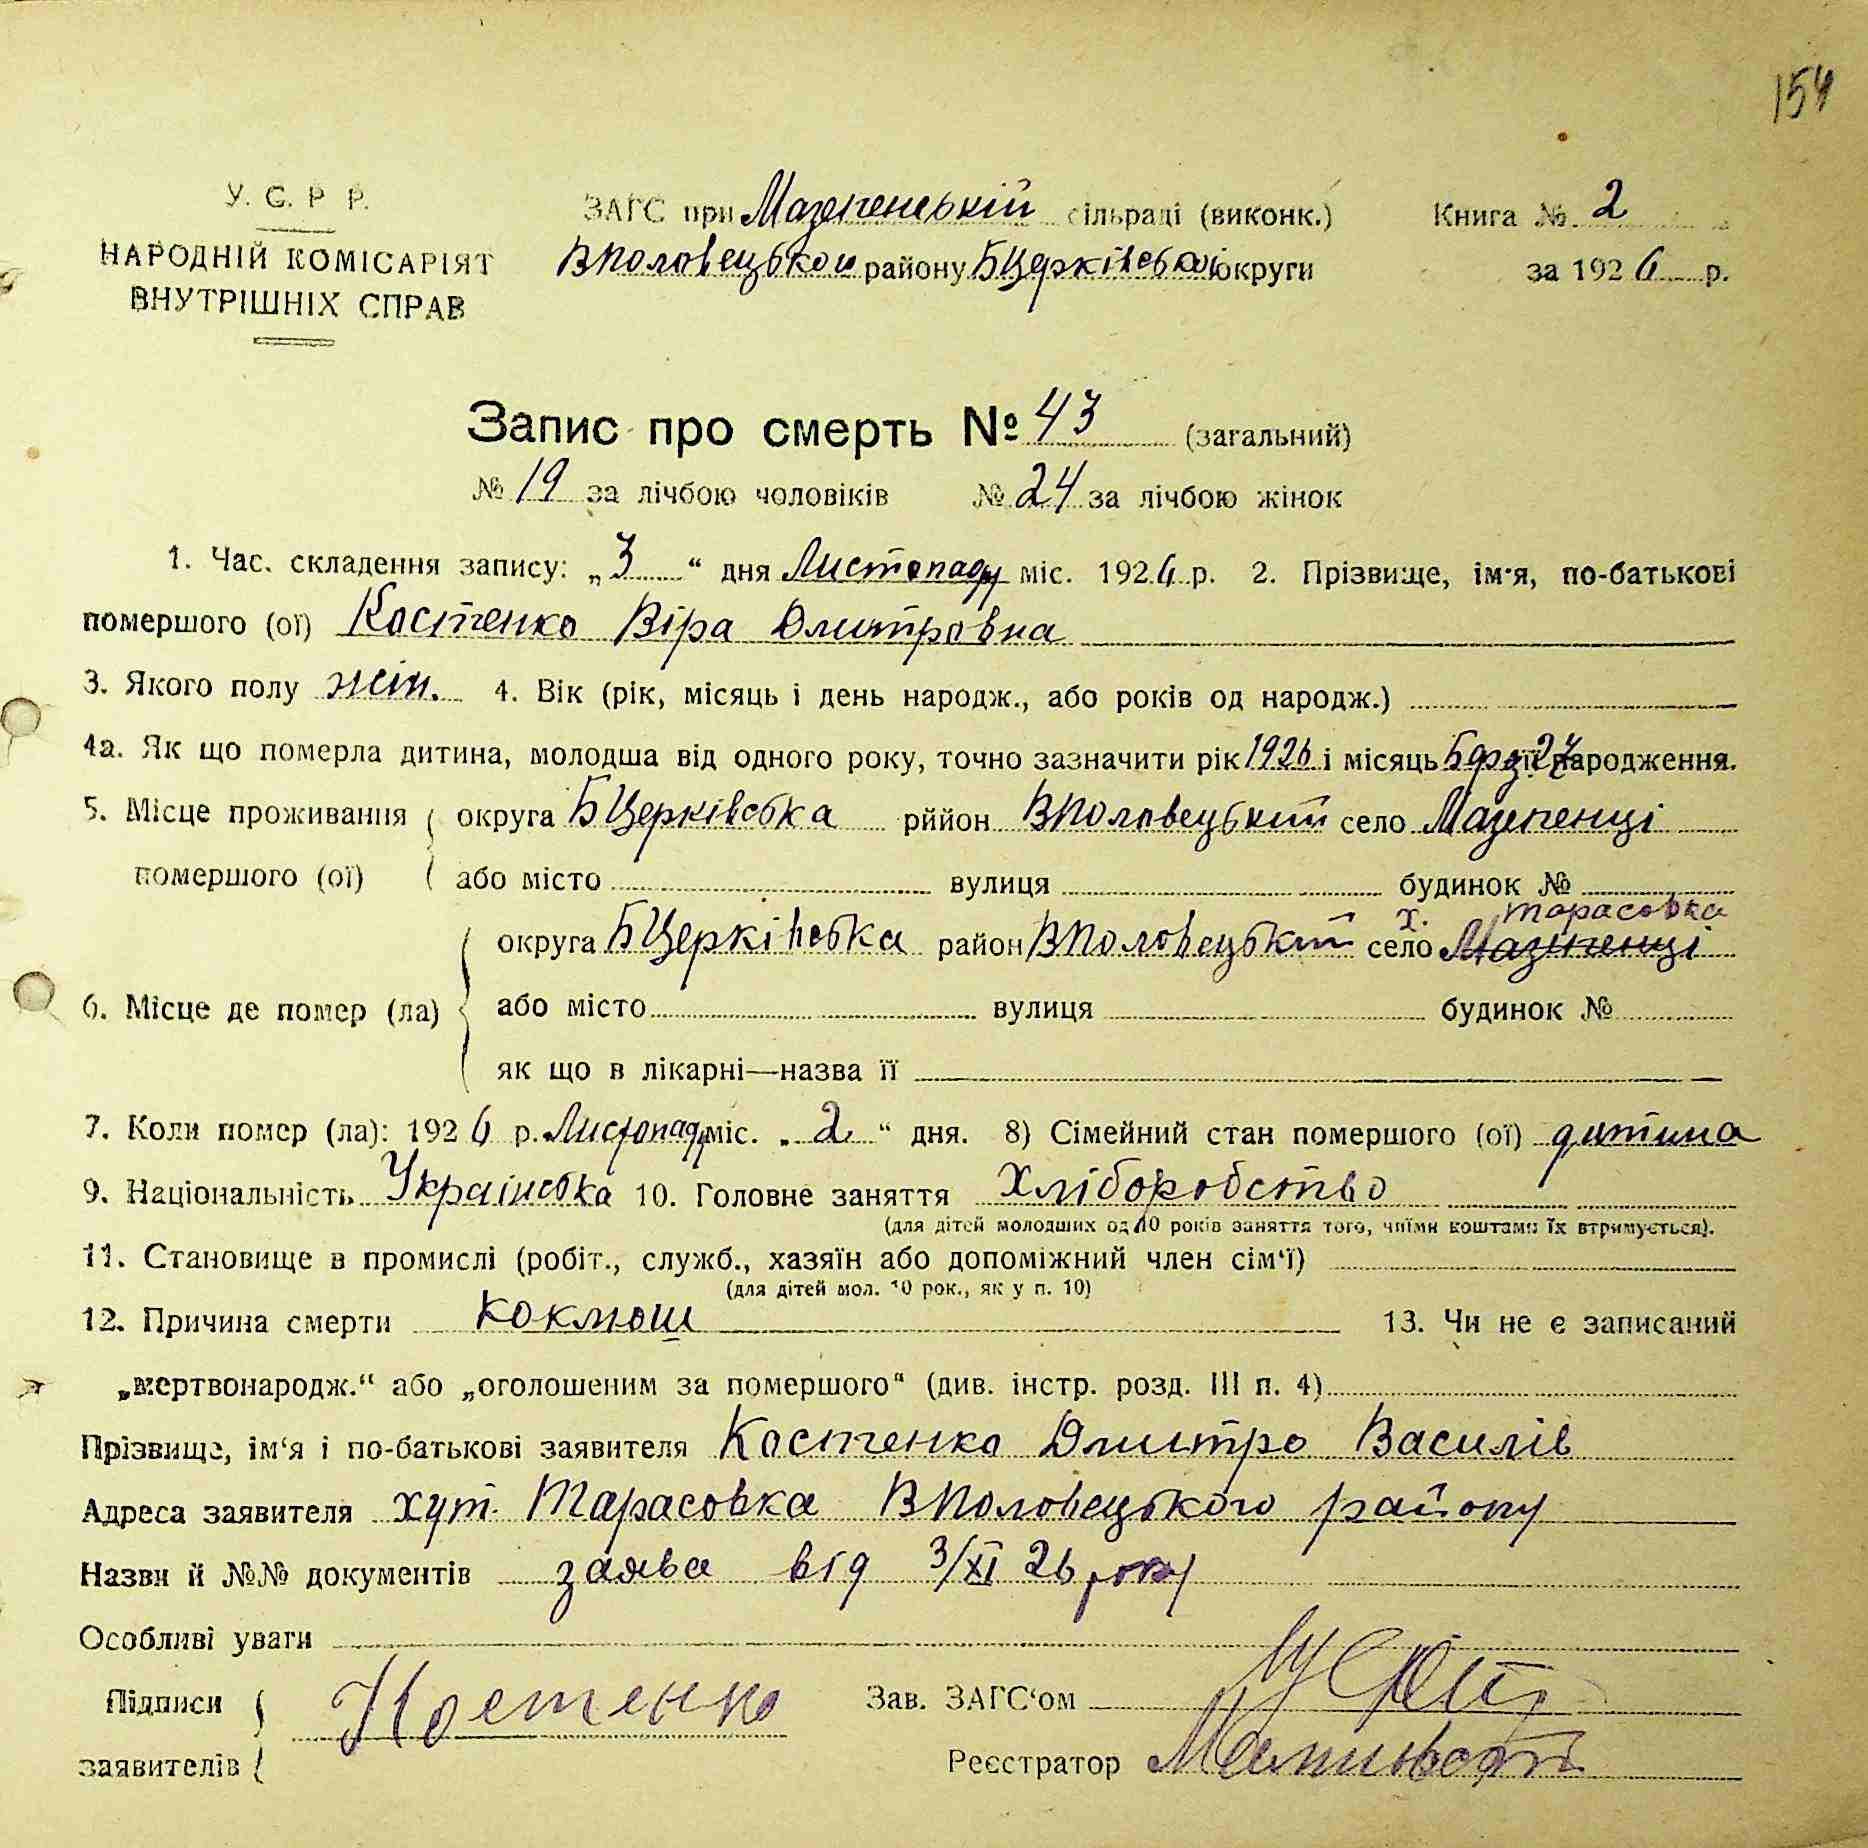 154
У. С. Р Р.
ЗАГС при Мазепенській сільраді (виконк.)
Книга № 2
НАРОДНІЙ КОМІСАРІЯТ
ВНУТРІШНІХ СПРАВ
ВПоловецькои району БЦерківськоі округи
за 1926 р.
Запис про смерть № 43 (загальний)
№ 19 за лічбою чоловіків № 24 за лічбою жінок
1. Час. складення запису: „3“ дня Листопаду міс. 1926 р. 2. Прізвище, ім'я, по-батькові
помершого (ої) Костенко Віра Дмитровна
3. Якого полу жін. 4. Вік (рік, місяць і день народж., або років од народж.)
4а. Як що померла дитина, молодша від одного року, точно зазначити рік 1926 і місяць її народження.
5. Місце проживання округа БЦерківська рййон ВПоловецький село Мазепенці
помершого (ої) або місто вулиця будинок №
х. Тарасовка
округа БЦерківська район ВПоловецький село Мазепенці
6. Місце де помер (ла) або місто вулиця будинок №
як що в лікарні—назва її
7. Коли помер (ла): 1926 р. Листопаду міс. „2“ дня. 8) Сімейний стан помершого (ої) дитина
9. Національність Украінська 10. Головне заняття Хліборобство
(для дітей молодших од 10 років заняття того, чиїми коштами їх втримується).
11. Становище в промислі (робіт., служб., хазяїн або допоміжний член сім'ї)
(для дітей мол. 10 рок., як у п. 10)
12. Причина смерти коклюш 13. Чи не є записаний
„мертвонародж.“ або „оголошеним за помершого“ (див. інстр. розд. III п. 4)
Прізвище, ім'я і по-батькові заявителя Костенко Дмитро Василів
Адреса заявителя хут. Тарасовка ВПоловецького району
Назви й №№ документів заява від 3/XI 26 року
Особливі уваги
Підписи Костенко Зав. ЗАГС'ом
заявителів Реєстратор